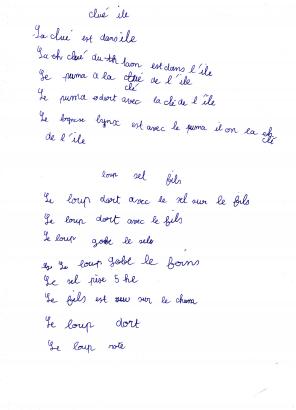 clué ile
La clué est dans ile
La clué du thaon est dans l'île
Le puma a la clé de l'île
Le puma dort avec la clé de l'île
Le lynx est avec le puma il on la clé
de l'île
loup sel fils
Le loup dort avec le sel sur le fils
Le loup dort avec le fils
Le loup gobe le sel
Le loup gobe le foins
Le sel pise 5 he
Le fils est sur le
Le loup dort
Le loup rote